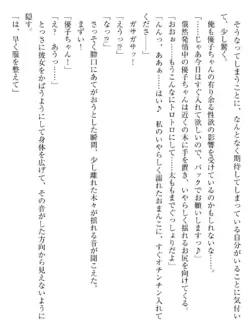 そうなってしまうことに、なんだか期待してしまっている自分がいることに気付い
て、少し驚く。
俺も優子ちゃんの有り余る性欲の影響を受けているのかもしれないな……。
「……じゃあ今日はすぐ入れて欲しいので、バックでお願いしますっ♪」
俄然発情中の優子ちゃんは近くの木に手を突き、いやらしく揺れるお尻を向けてくる。
「おおぉ……もうこんなにトロトロにして……太ももまでぐっしょりだよ」
「んんっ、ああぁ……はい♪　私のいやらしく濡れたおまんこに、すぐオチンチン入れて
くださ……」
ガサガサッ！
「えうっ
「なっ
さっそく膣口にあてがおうとした瞬間、少し離れた木々が揺れる音が聞こえた。
まずい！
「優子ちゃん！」
「え？　あうっ……」
とっさに彼女をかばうようにして身体を広げて、その音がした方向から見えないように
隠す。
「は、早く服を整えて」